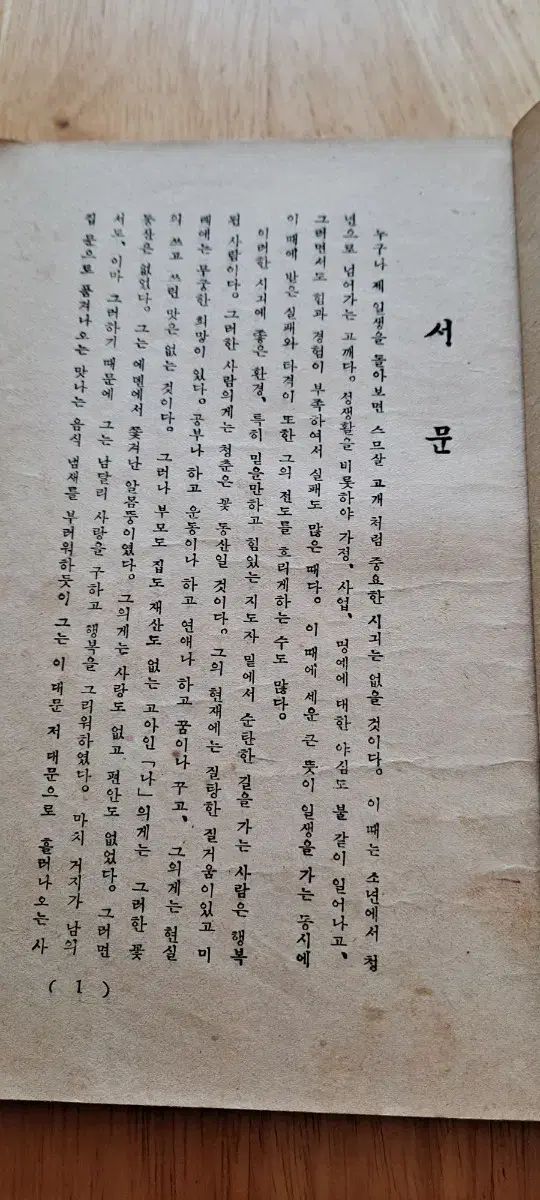 서 문
누구나 제 일생을 돌아보면 스므살 고개 처럼 중요한 시기는 없을 것이다。 이 때는 소년에서 청
년으로 넘어가는 고깨다。 성생활을 비롯하야 가정、 사업、 명예에 대한 야심도 불 같이 일어나고、
그러면서도 힘과 경험이 부족하여서 실패도 많은 때다。 이 때에 세운 큰 뜻이 일생을 가는 동시에
이 때에 받은 실패와 타격이 또한 그의 전도를 흐리게하는 수도 많다。
이러한 시기에 좋은 환경、 특히 믿을만하고 힘있는 지도자 밑에서 순탄한 길을 가는 사람은 행복
된 사람이다。 그러한 사람의게는 청춘은 꽃 동산일 것이다。 그의 현재에는 질탕한 질거움이있고 미
레에는 무궁한 희망이 있다。 공부나 하고 운동이나 하고 연애나 하고 꿈이나 꾸고、 그의게는 현실
의 쓰고 쓰린 맛은 없는 것이다。 그러나 부모도 집도 재산도 없는 고아인 「나」의게는 그러한 꽃
동산은 없었다。 그는 에덴에서 쫓겨난 알몸뚱이였다。 그의게는 사랑도 없고 편안도 없었다。 그러면
서도、 이마 그러하기 때문에 그는 남달리 사랑을 구하고 행복을 그리워하였다。 마치 거지가 남의
집 문으로 품겨나오는 맛나는 음식 냄새를 부러워하듯이 그는 이 대문 저 대문으로 흘러나오는 사
( 1 )